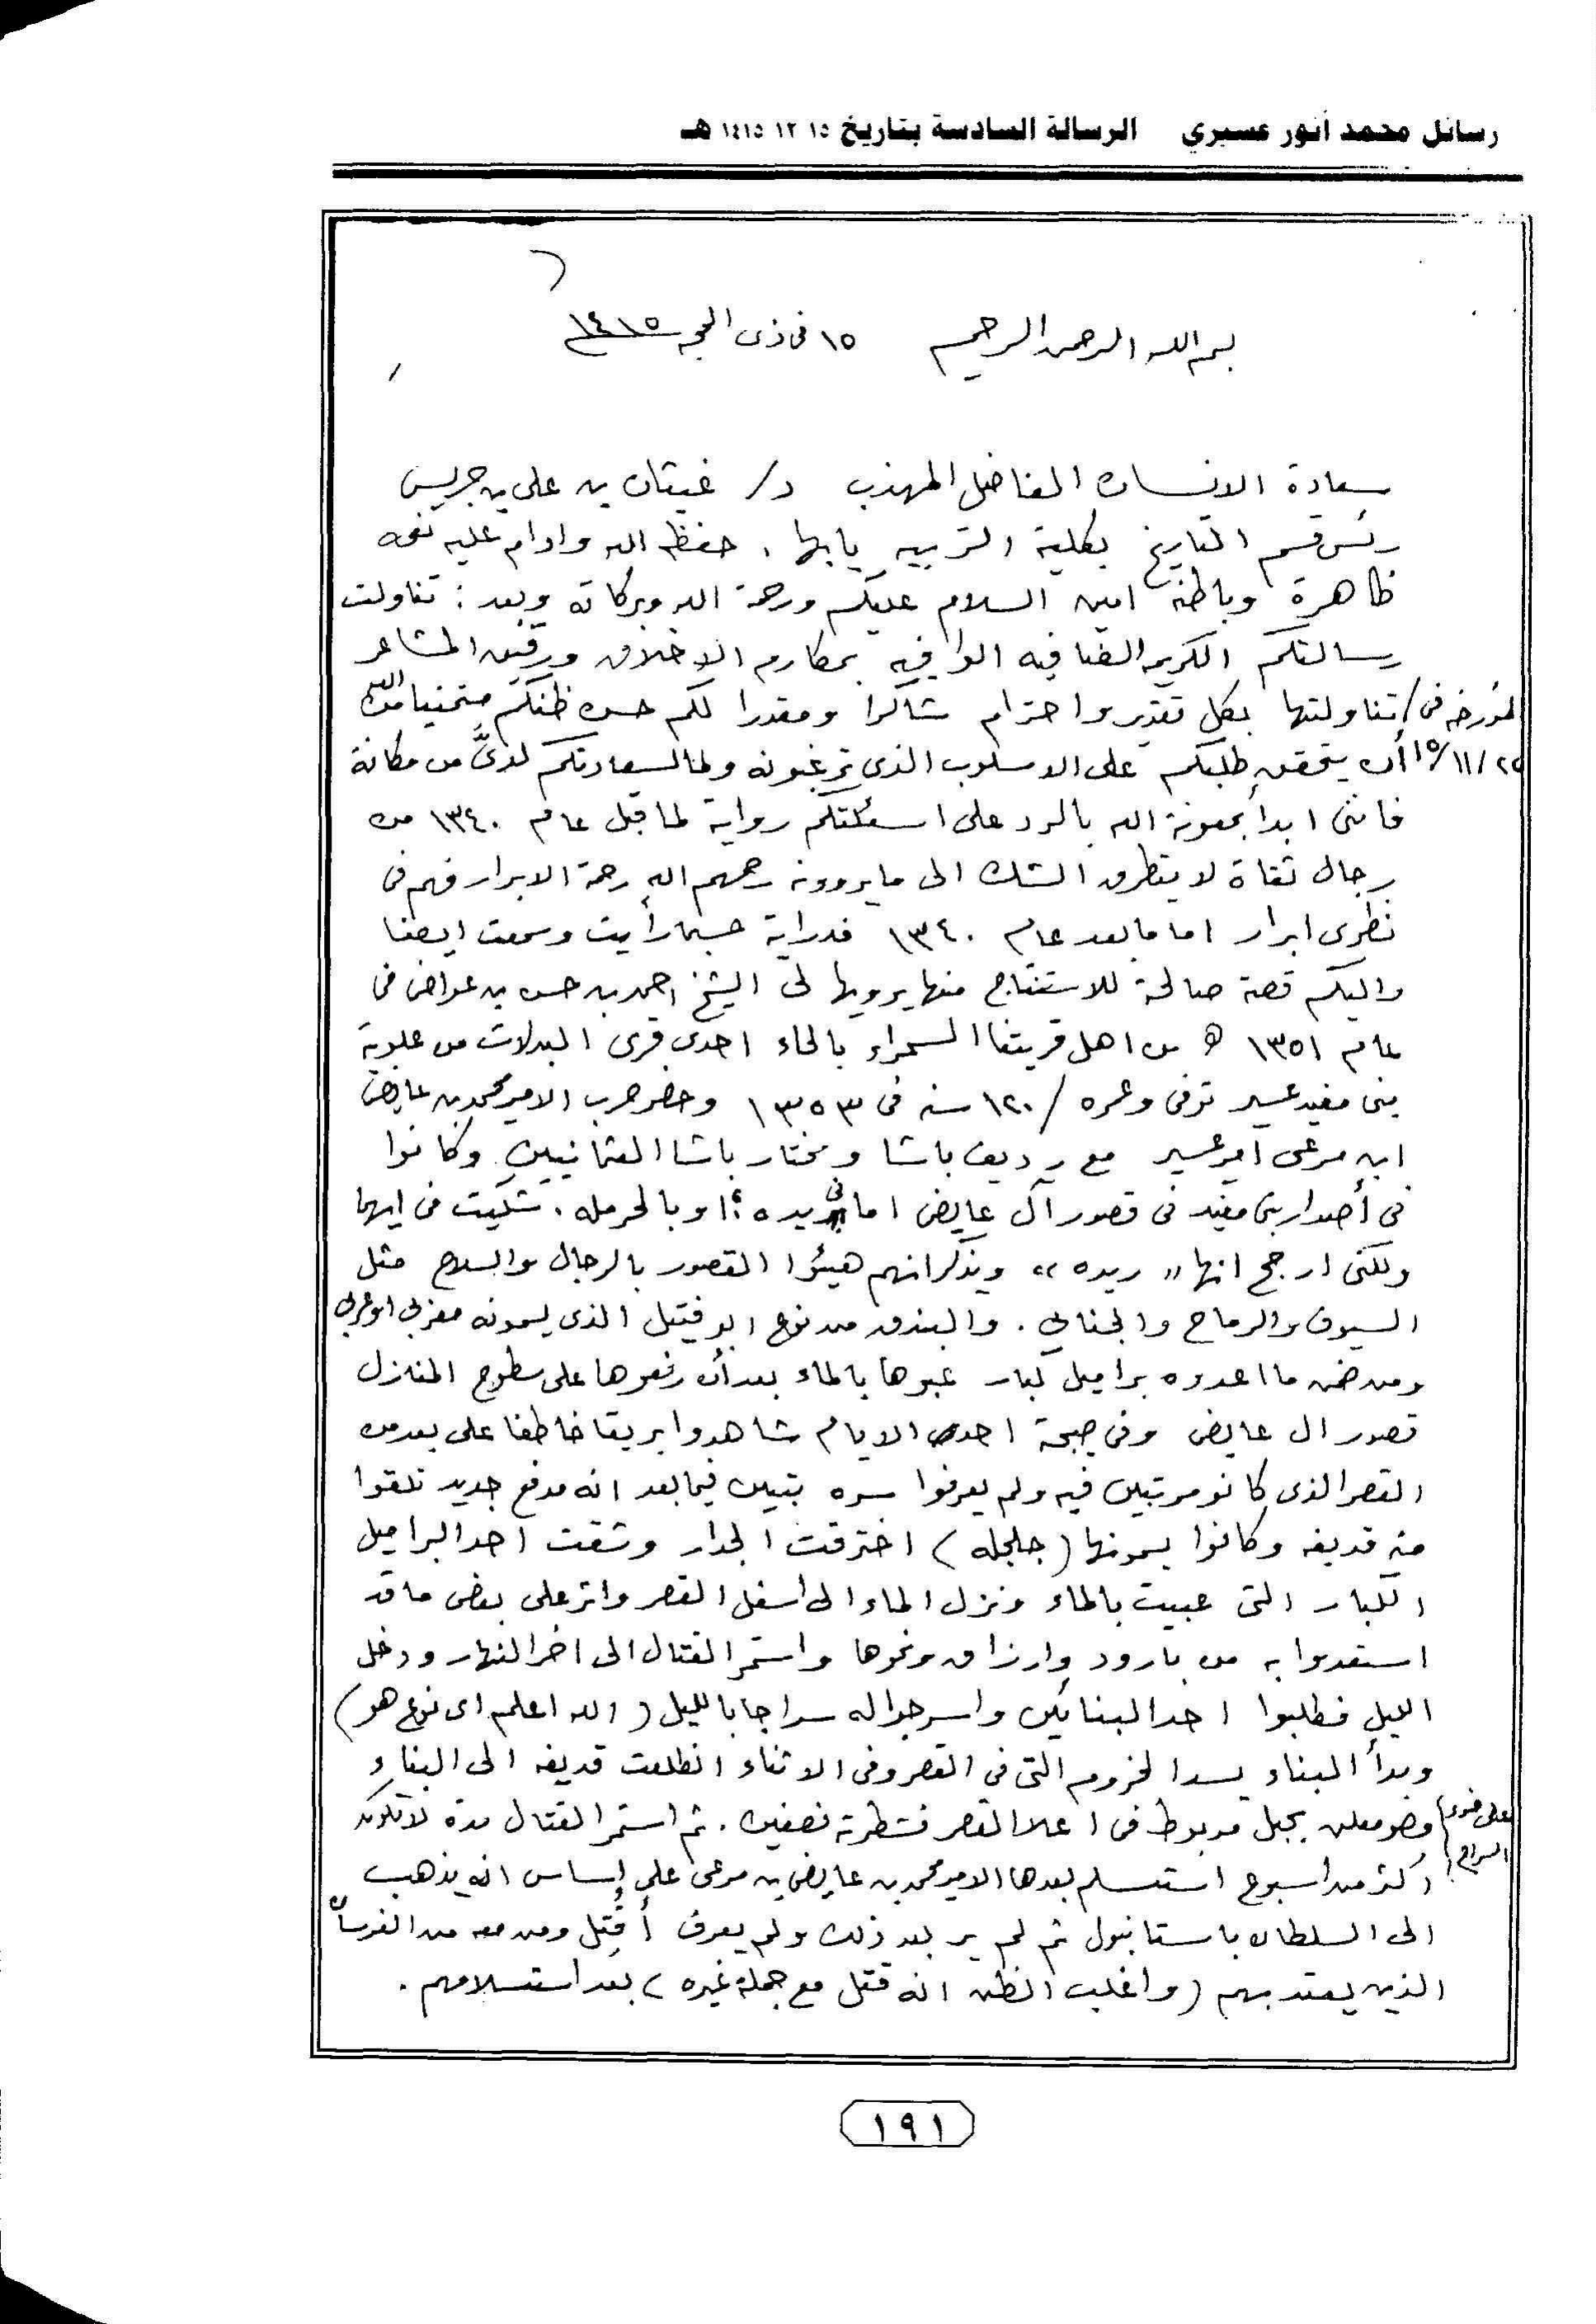 رسائل محمد أنور عسيري الرسالة السادسة بتاريخ ١٥ ١٢ ١٤١٥ هـ
بسم الله الرحمن الرحيم ١٥ فى ذى الحجه ١٤١٥
سعادة الانسان الفاضل المهذب د/ غيثان بن على بن جريس
رئس قسم التاريخ بكلية التربيه بابها . حفظه الله وادام عليه نعمه
ظاهرة وباطنه امين السلام عليكم ورحمة الله وبركاته وبعد : تناولت
رسالتكم الكريمه الضافيه الوافيه بمكارم الاخلاق ورقيق المشاعر
المؤرخه فى / تناولتها بكل تقدير واحترام شاكرا ومقدرا لكم حسن ظنكم متمنيا من الله
٢٢/١١/١٥ أن يتحقق طلبكم على الاسلوب الذى ترغبونه ولما لسعادتكم لدىَّ من مكانة
فانني ابدأ بمعونة الله بالرد على اسئلتكم رواية لما قبل عام ١٣٤٠ من
رجال ثقاة لا يتطرق الشك الى ما يروونه رحمهم الله رحمة الابرار فهم فى
نظرى ابرار اما ما بعد عام ١٣٤٠ فدراية حسبما رأيت وسمعت ايضا
واليكم قصة صالحة للاستنتاج منها يرويها لى الشيخ احمد بن حسن بن عواض فى
عام ١٣٥١ ه من اهل قريتنا السحراء بالحاء احدى قرى البدلات من علوية
بنى مغيد عسير توفى وعمره / ١٢٠ سنه فى ١٣٥٣ وحضر حرب الامير محمد بن عايض
ابن مرعى امير عسير مع رديف باشا ومختار باشا العثمانيين وكانوا
فى أصدار بنى مغيد فى قصور آل عايض اما فى ريده ؟ او بالحرمله . شكيت فى ايهما
ولكنى ارجح انها " ريده " ويذكر انهم هيئوا القصور بالرجال والسلاح مثل
السيوف والرماح والجنابي . والبندق من نوع ابو فتيل الذى يسمونه مغربى او عربى
ومن ضمن ما اعدوه براميل كبار عبوها بالماء بعد أن رفعوها على سطوح المنازل
قصور ال عايض وفى صبحة احدى الايام شاهدوا بريقا خاطفا على بعد من
القصر الذى كانو مرتبين فيه ولم يعرفوا سره بتبين فيما بعد انه مدفع جديد تلقوا
منه قديفه وكانوا يسمونها ( جلجله ) اخترقت الجدار وشقت احد البراميل
الكبار التى عبيت بالماء ونزل الماء الى اسفل القصر واثر على بعض ما قد
استعدوا به من بارود وارزاق ونحوها واستمر القتال الى اخر النهار ودخل
الليل فطلبوا احد البنائين واسرجوا له سراجا بالليل ( الله اعلم اى نوع هو )
وبدأ البناء يسد الخروم التى فى القصر وفى الاثناء انطلقت قديفه الى البناء
على ضوء السراج ) وهو معلق بحبل مربوط فى اعلا القصر فشطرته نصفين . ثم استمر القتال مدة لا تكون
اكثر من اسبوع استسلم بعدها الامير محمد بن عايض بن مرعى على اساس انه يذهب
الى السلطان باستانبول ثم لم ير بعد ذلك ولم يعرف أقُتل ومن معه من الفرسان
الذين يعتد بهم ( واغلب الظن انه قتل مع جملة غيره ) بعد استسلامهم .
١٩١